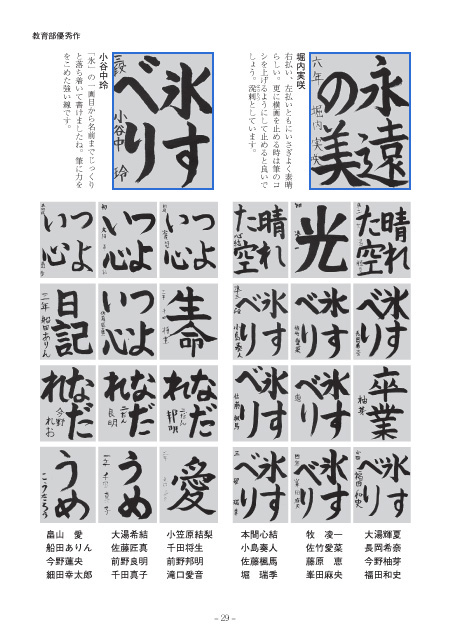 教育部優秀作
堀内実咲
右払い、左払いともにいさぎよく素晴
らしい。更に横画を止める時は筆のコ
シを上げるようにして止めると良いで
しょう。溌剌としています。
永遠
の美
六年 堀内実咲
小谷中玲
「氷」の一画目から名前までじっくり
と落ち着いて書けましたね。筆に力を
をこめた強い線です。
氷す
べり
小谷中 玲
晴れ
た空
光
晴れ
た空
つよ
い心
つよ
い心
つよ
い心
氷す
べり
氷す
べり
氷す
べり
生命
つよ
い心
日記
二年 船田ありん
卒業
柚芽
氷す
べり
氷す
べり
なだ
れ
邦明
なだ
れ
良明
なだ
れ
今野
れお
氷す
べり
福田和史
氷す
べり
氷す
べり
愛
うめ
うめ
こうたろう
大湯輝夏
長岡希奈
今野柚芽
福田和史
牧 凌一
佐竹愛菜
藤原 恵
峯田麻央
本間心結
小島奏人
佐藤楓馬
堀 瑞季
小笠原結梨
千田将生
前野邦明
滝口愛音
大湯希結
佐藤匠真
前野良明
千田真子
畠山 愛
船田ありん
今野蓮央
細田幸太郎
– 29 –